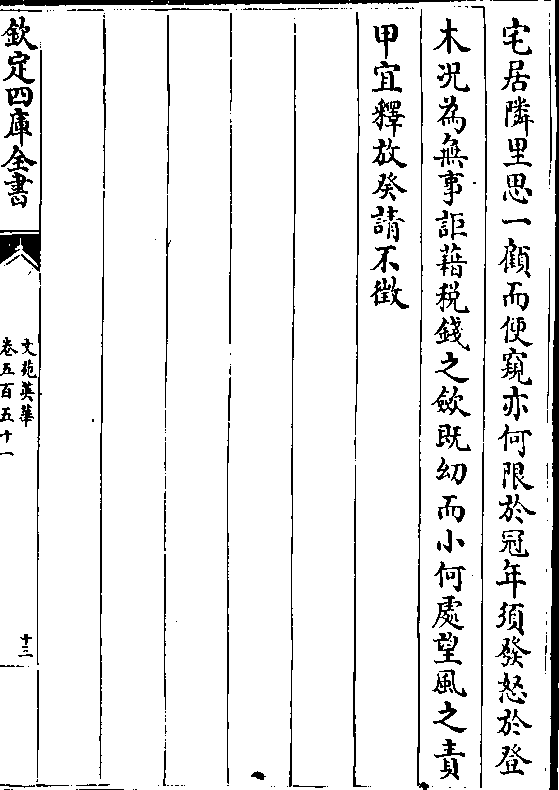 宅居隣里思一顧而便窺亦何限於冠年須發怒於登
木况為無事詎藉税錢之斂既㓜而小何處望風之責
甲宜釋放癸請不徵
欽定四庫全書
文苑英華
卷五百五十一
十三